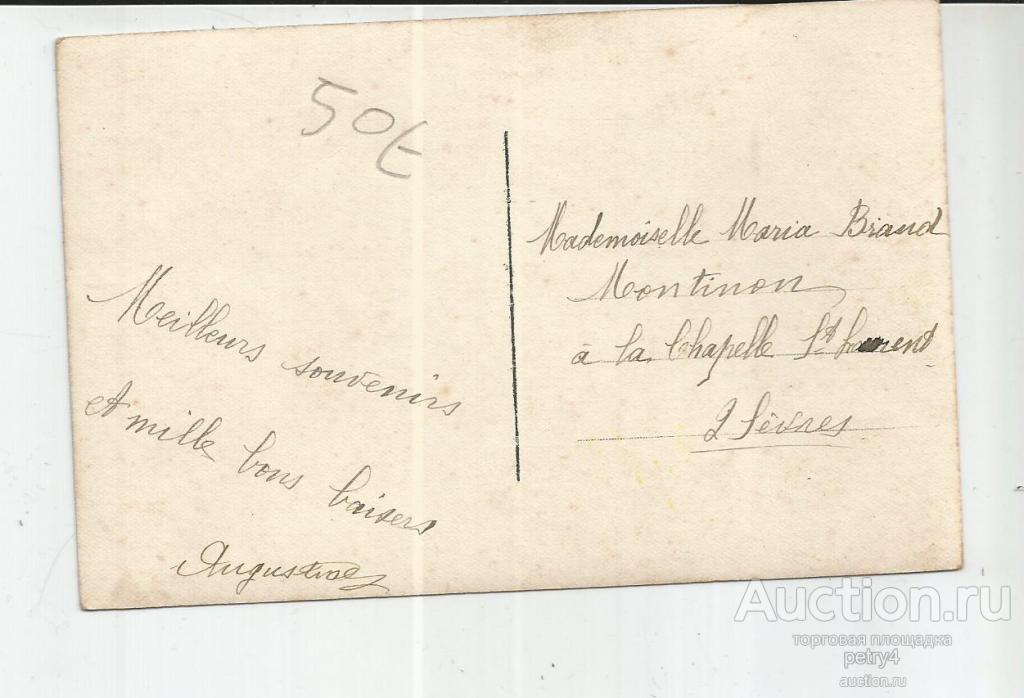 50t
Meilleurs souvenirs
et mille bons baisers
Augustine
Mademoiselle Maria Briand
Montinon
à la Chapelle St Laurent
2 Sèvres
Auction.ru
торговая площадка
petry4
auction.ru